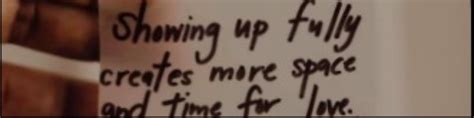 Showing up fully
creates more space
and time for love.